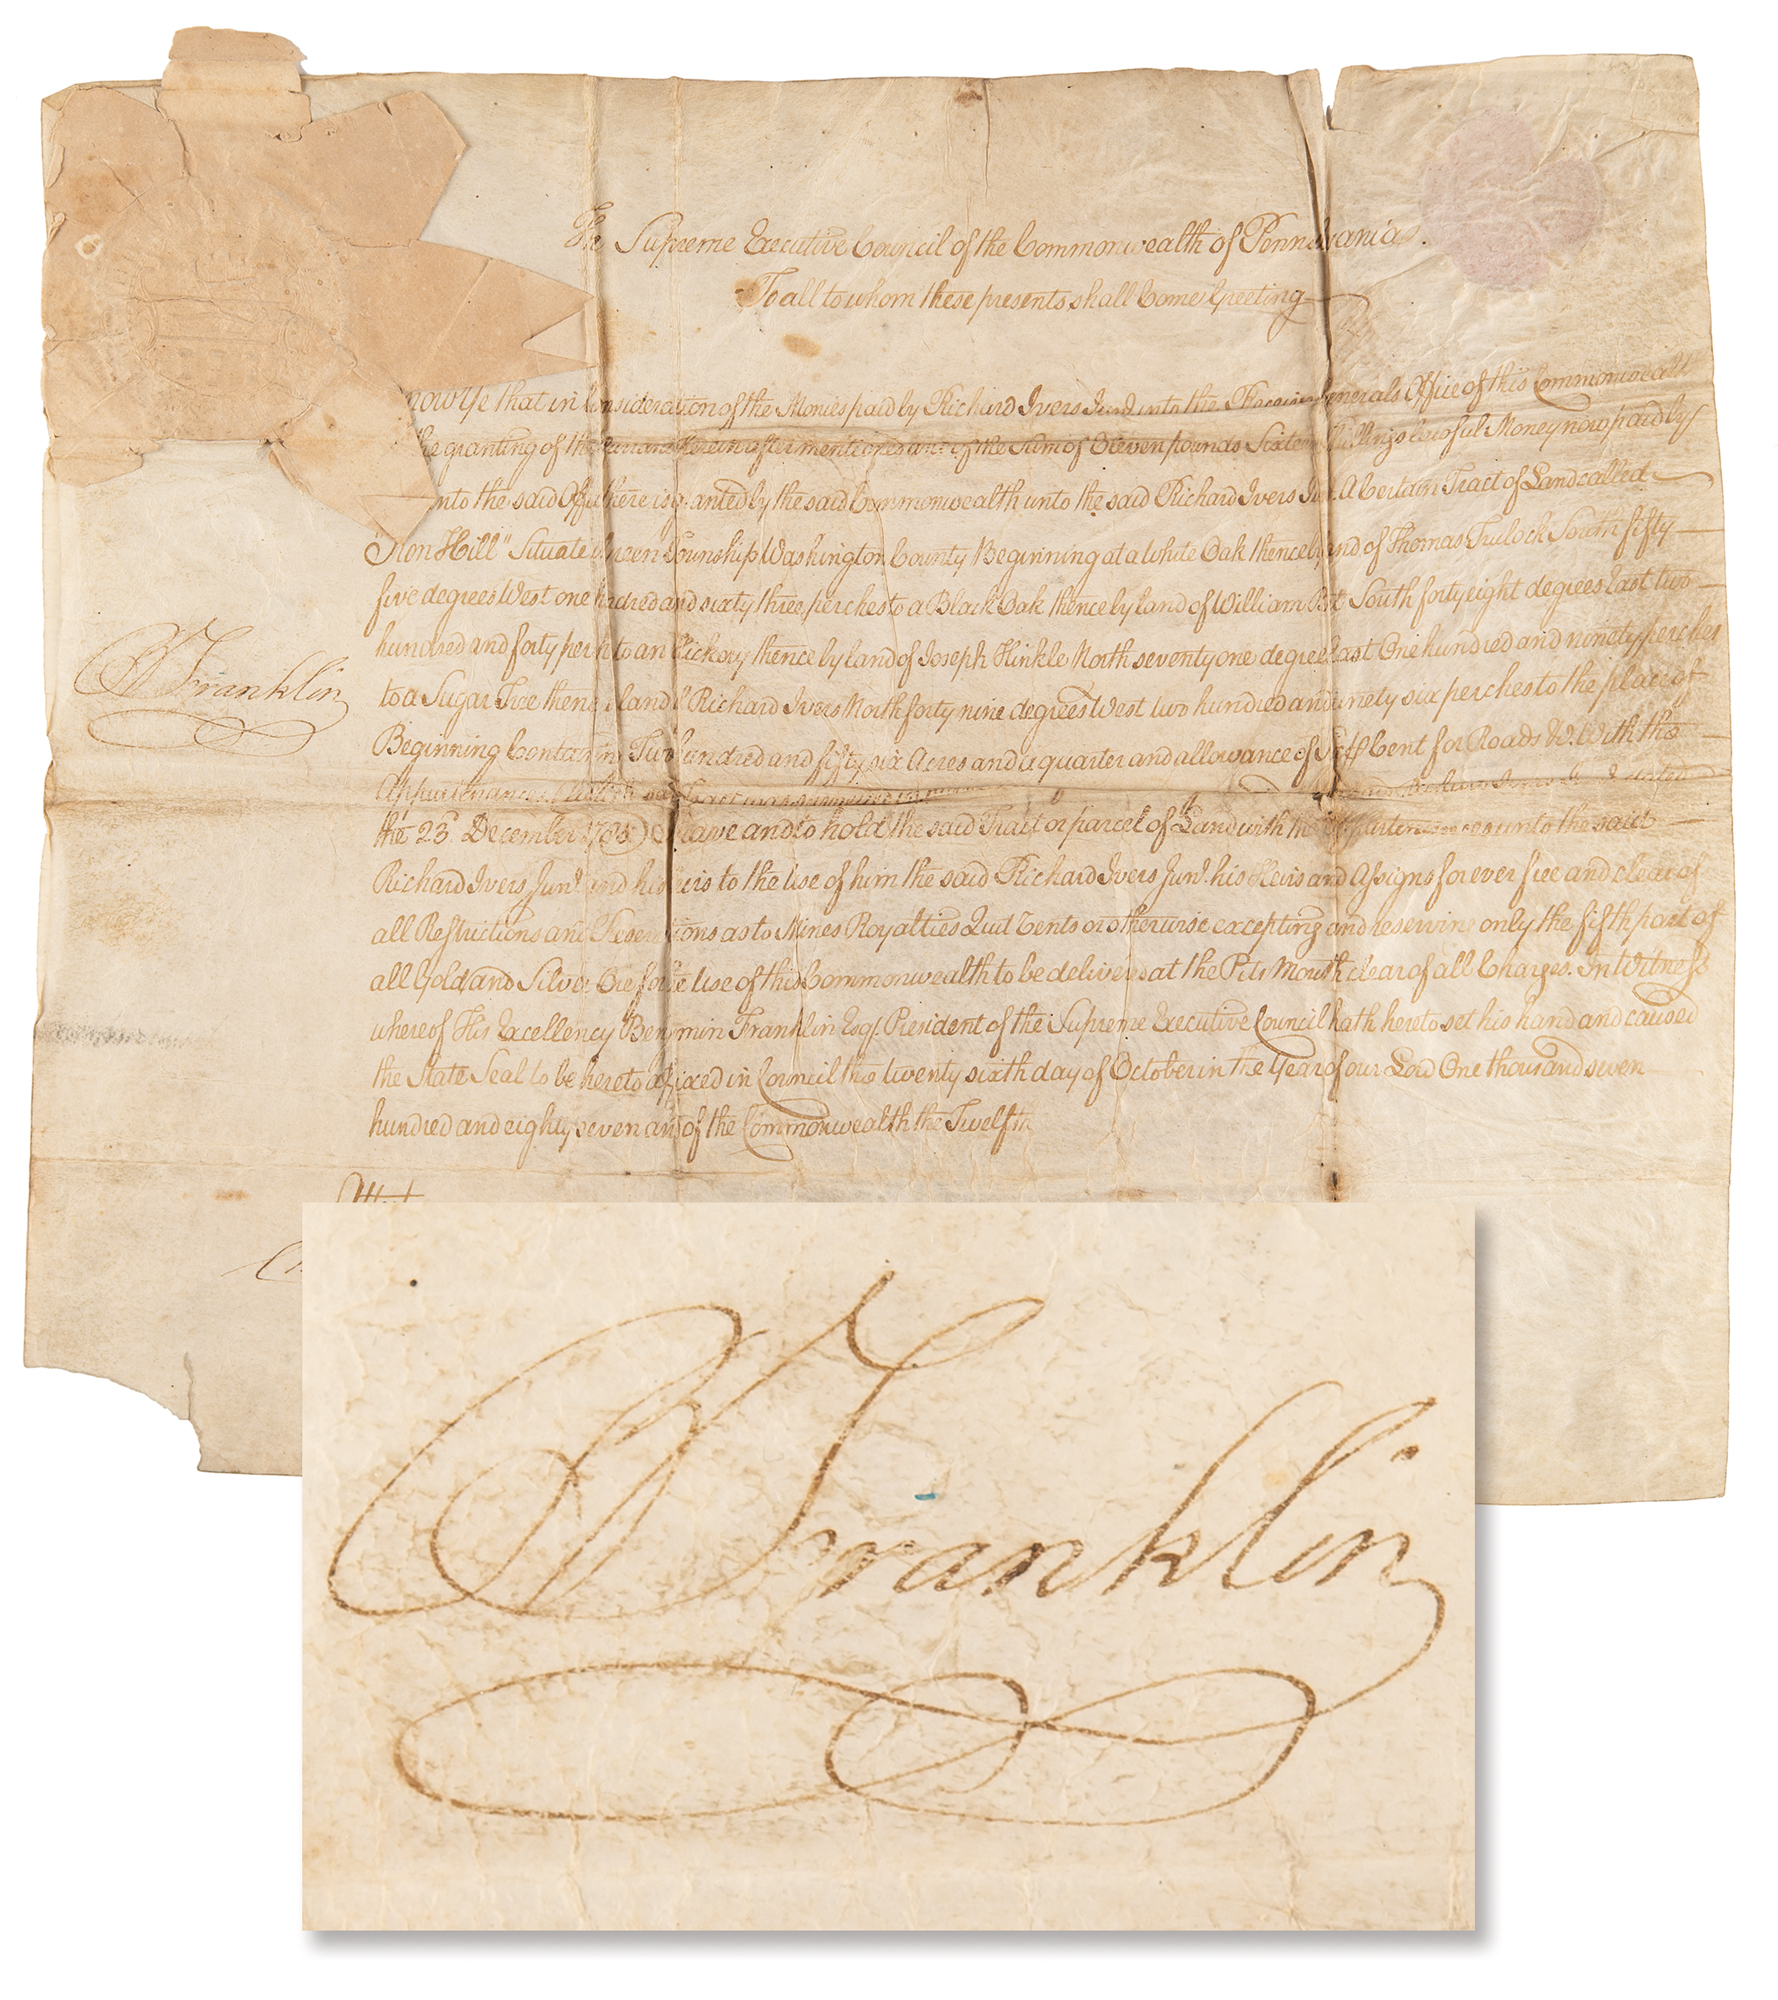 The Supreme Executive Council of the Commonwealth of Pennsylvania
To all to whom these presents shall Come Greeting
Know Ye that in Consideration of the Monies paid by Richard Ivers Junr. into the Generals Office of this Commonwealth
the granting of the hereinafter mentioned and of the Sum of pounds Sixteen Shillings lawful Money now paid by
into the said Office there is granted by the said Commonwealth unto the said Richard Ivers Junr. A Certain Tract of Land called
Hill" Situate in Township Washington County Beginning at a White Oak thence by land of Thomas Tulock South fifty
five degrees West one hudred and sixty three perches to a Black Oak thence by land of William South forty eight degrees East two
hundred and forty perches to an Hickory thence by land of Joseph Hinkle North seventy one degrees East One hundred and ninety perches
to a Sugar Tree thence land Richard Ivers North forty nine degrees West two hundred and ninety six perches to the place of
Beginning Containing Two hundred and fifty six Acres and a quarter and allowance of Six Cent for Roads &c. With the
Appurtenances
the 23d. December To have and to hold the said Tract or parcel of Land with the Appurtenances unto the said
Richard Ivers Junr. and his Heirs to the Use of him the said Richard Ivers Junr. his Heirs and Assigns forever free and clear of
all Restrictions and Reservations as to Mines Royalties Quit Rents or otherwise excepting and reserving only the fifth part of
all Gold and Silver Ore for the Use of this Commonwealth to be delivered at the Pits Mouth clear of all Charges. In Witness
whereof His Excellency Benjamin Franklin Esqr. President of the Supreme Executive Council hath hereto set his hand and caused
the State Seal to be hereto affixed in Council this twenty sixth day of October in the Year of our Lord One thousand seven
hundred and eighty seven and of the Commonwealth the Twelfth
B Franklin
B Franklin